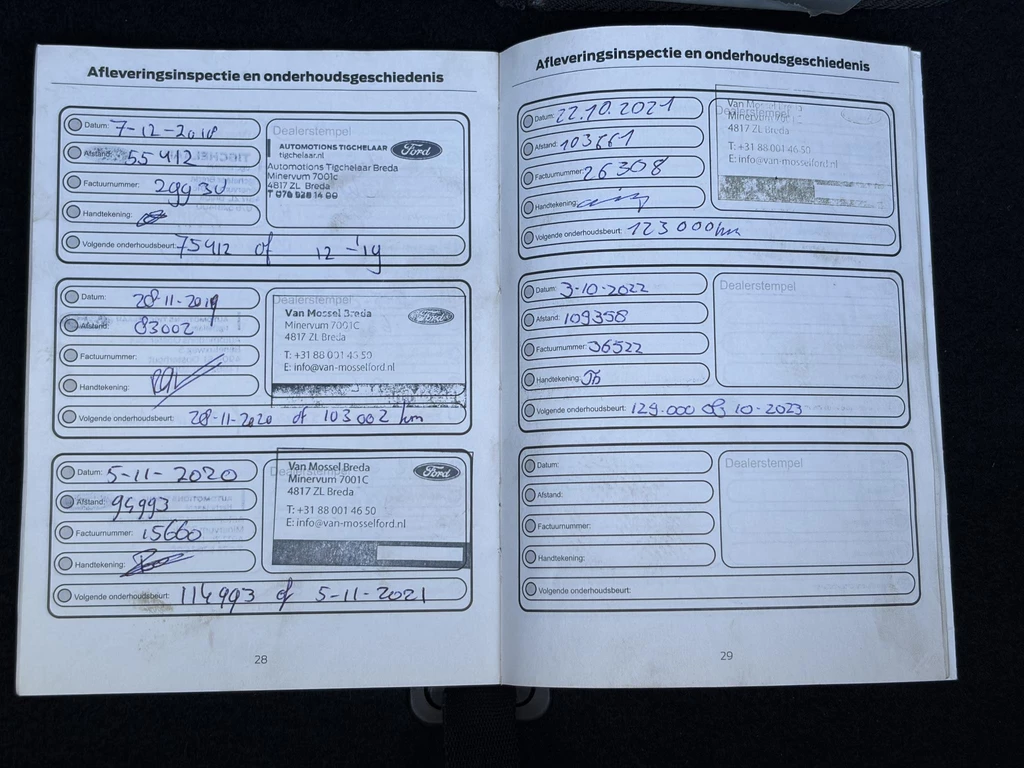 Afleveringsinspectie en onderhoudsgeschiedenis
Datum: 7-12-2018
Afstand: 55412
Factuurnummer:
Handtekening:
Volgende onderhoudsbeurt: 75412 of 12-'19
Dealerstempel
AUTOMOTIONS TIGCHELAAR
tigchelaar.nl
Ford
Automotions Tigchelaar Breda
Minervum 7001c
4817 ZL Breda
Datum: 28-11-2019
Afstand: 83002
Factuurnummer:
Handtekening:
Volgende onderhoudsbeurt: 28-11-2020 of 103002 km
Dealerstempel
Van Mossel Breda
Ford
Minervum 7001C
4817 ZL Breda
T: +31 88 001 46 50
E: info@van-mosselford.nl
Datum: 5-11-2020
Afstand: 94993
Factuurnummer: 15660
Handtekening:
Volgende onderhoudsbeurt: 114993 of 5-11-2021
Dealerstempel
Van Mossel Breda
Ford
Minervum 7001C
4817 ZL Breda
T: +31 88 001 46 50
E: info@van-mosselford.nl
28
Afleveringsinspectie en onderhoudsgeschiedenis
Datum: 22.10.2021
Afstand: 103661
Factuurnummer: 26308
Handtekening:
Volgende onderhoudsbeurt: 123000km
Dealerstempel
Van Mossel Breda
Minervum 7001C
4817 ZL Breda
T: +31 88 001 46 50
E: info@van-mosselford.nl
Datum: 3-10-2022
Afstand: 109358
Factuurnummer: 36522
Handtekening:
Volgende onderhoudsbeurt: 129.000 of 10-2023
Dealerstempel
Datum:
Afstand:
Factuurnummer:
Handtekening:
Volgende onderhoudsbeurt:
Dealerstempel
29